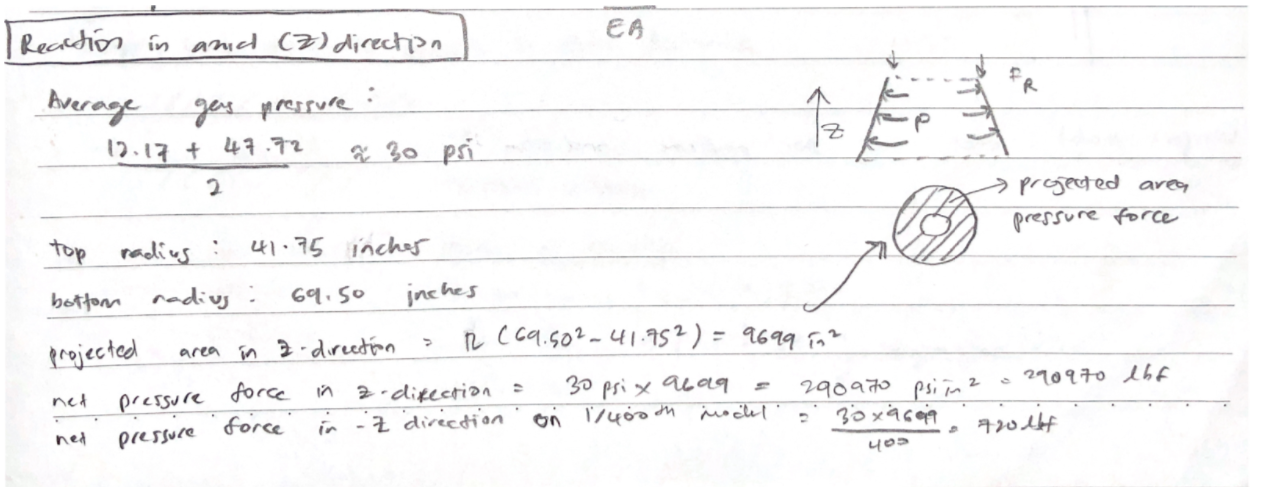 EA
Reaction in axial (Z) direction
F_R
Average gas pressure :
z
P
12.17 + 47.72 / 2 ≈ 30 psi
projected area
pressure force
top radius : 41.75 inches
bottom radius : 69.50 inches
projected area in z-direction = π (69.50² - 41.75²) = 9699 in²
net pressure force in z-direction = 30 psi × 9699 = 290970 psi in² = 290970 lbf
net pressure force in -z direction on 1/400th model = 30×9699 / 400 = 720 lbf